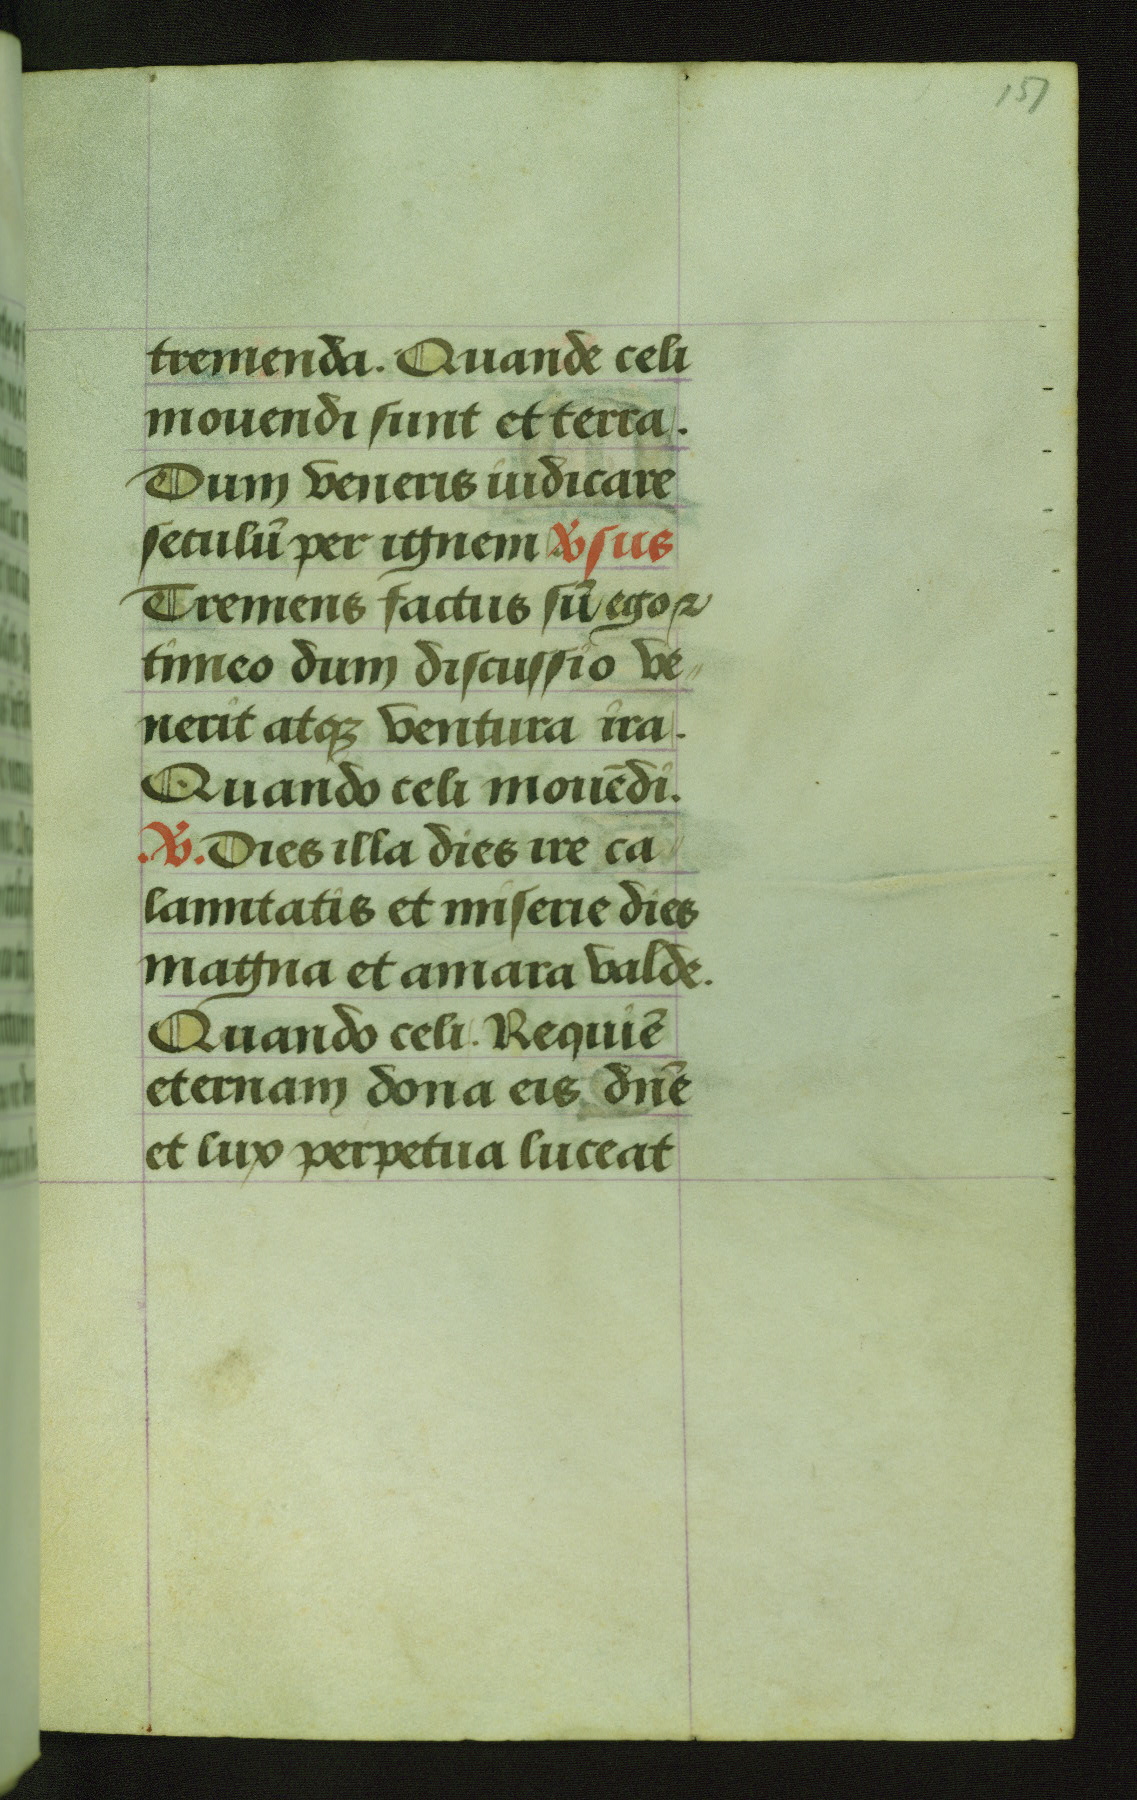 151
tremenda. Quande celi
mouendi sunt et terra.
Dum veneris iudicare
seculū per ignem ℣sus
Tremens factus sū ego ⁊
timeo dum discussio ve〃
nerit atqꝫ ventura ira.
Quando celi mouēdi.
.℣. Dies illa dies ire ca〃
lamitatis et miserie dies
magna et amara valde.
Quando celi. Requiē
eternam dona eis dn̄e
et lux perpetua luceat